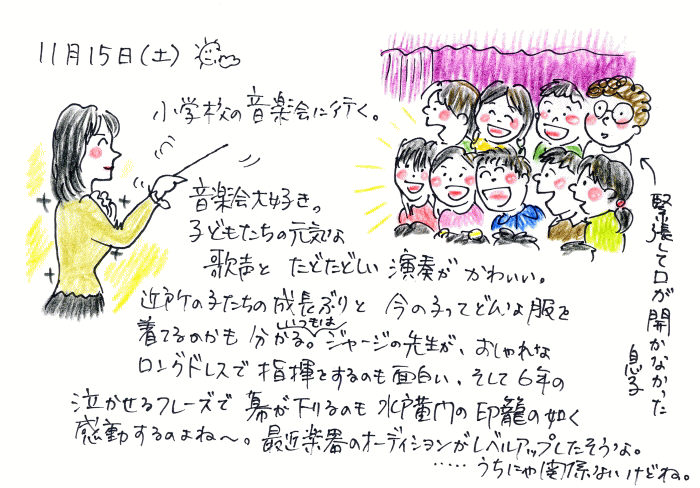 11月15日(土)
小学校の音楽会に行く。
音楽会大好き。
子どもたちの元気な
歌声と たどたどしい 演奏が かわいい。
近所の子たちの成長ぶりと 今の子ってどんな服を
着てるのかも 分かる。いつもはジャージの先生が、おしゃれな
ロングドレスで 指揮をするのも面白い、そして6年の
泣かせるフレーズで 幕が下りるのも 水戸黄門の印籠の如く
感動するのよね〜。最近楽器のオーディションがレベルアップしたそうよ。
‥‥‥うちにゃ関係ないけどね。
緊張して口が開かなかった
息子